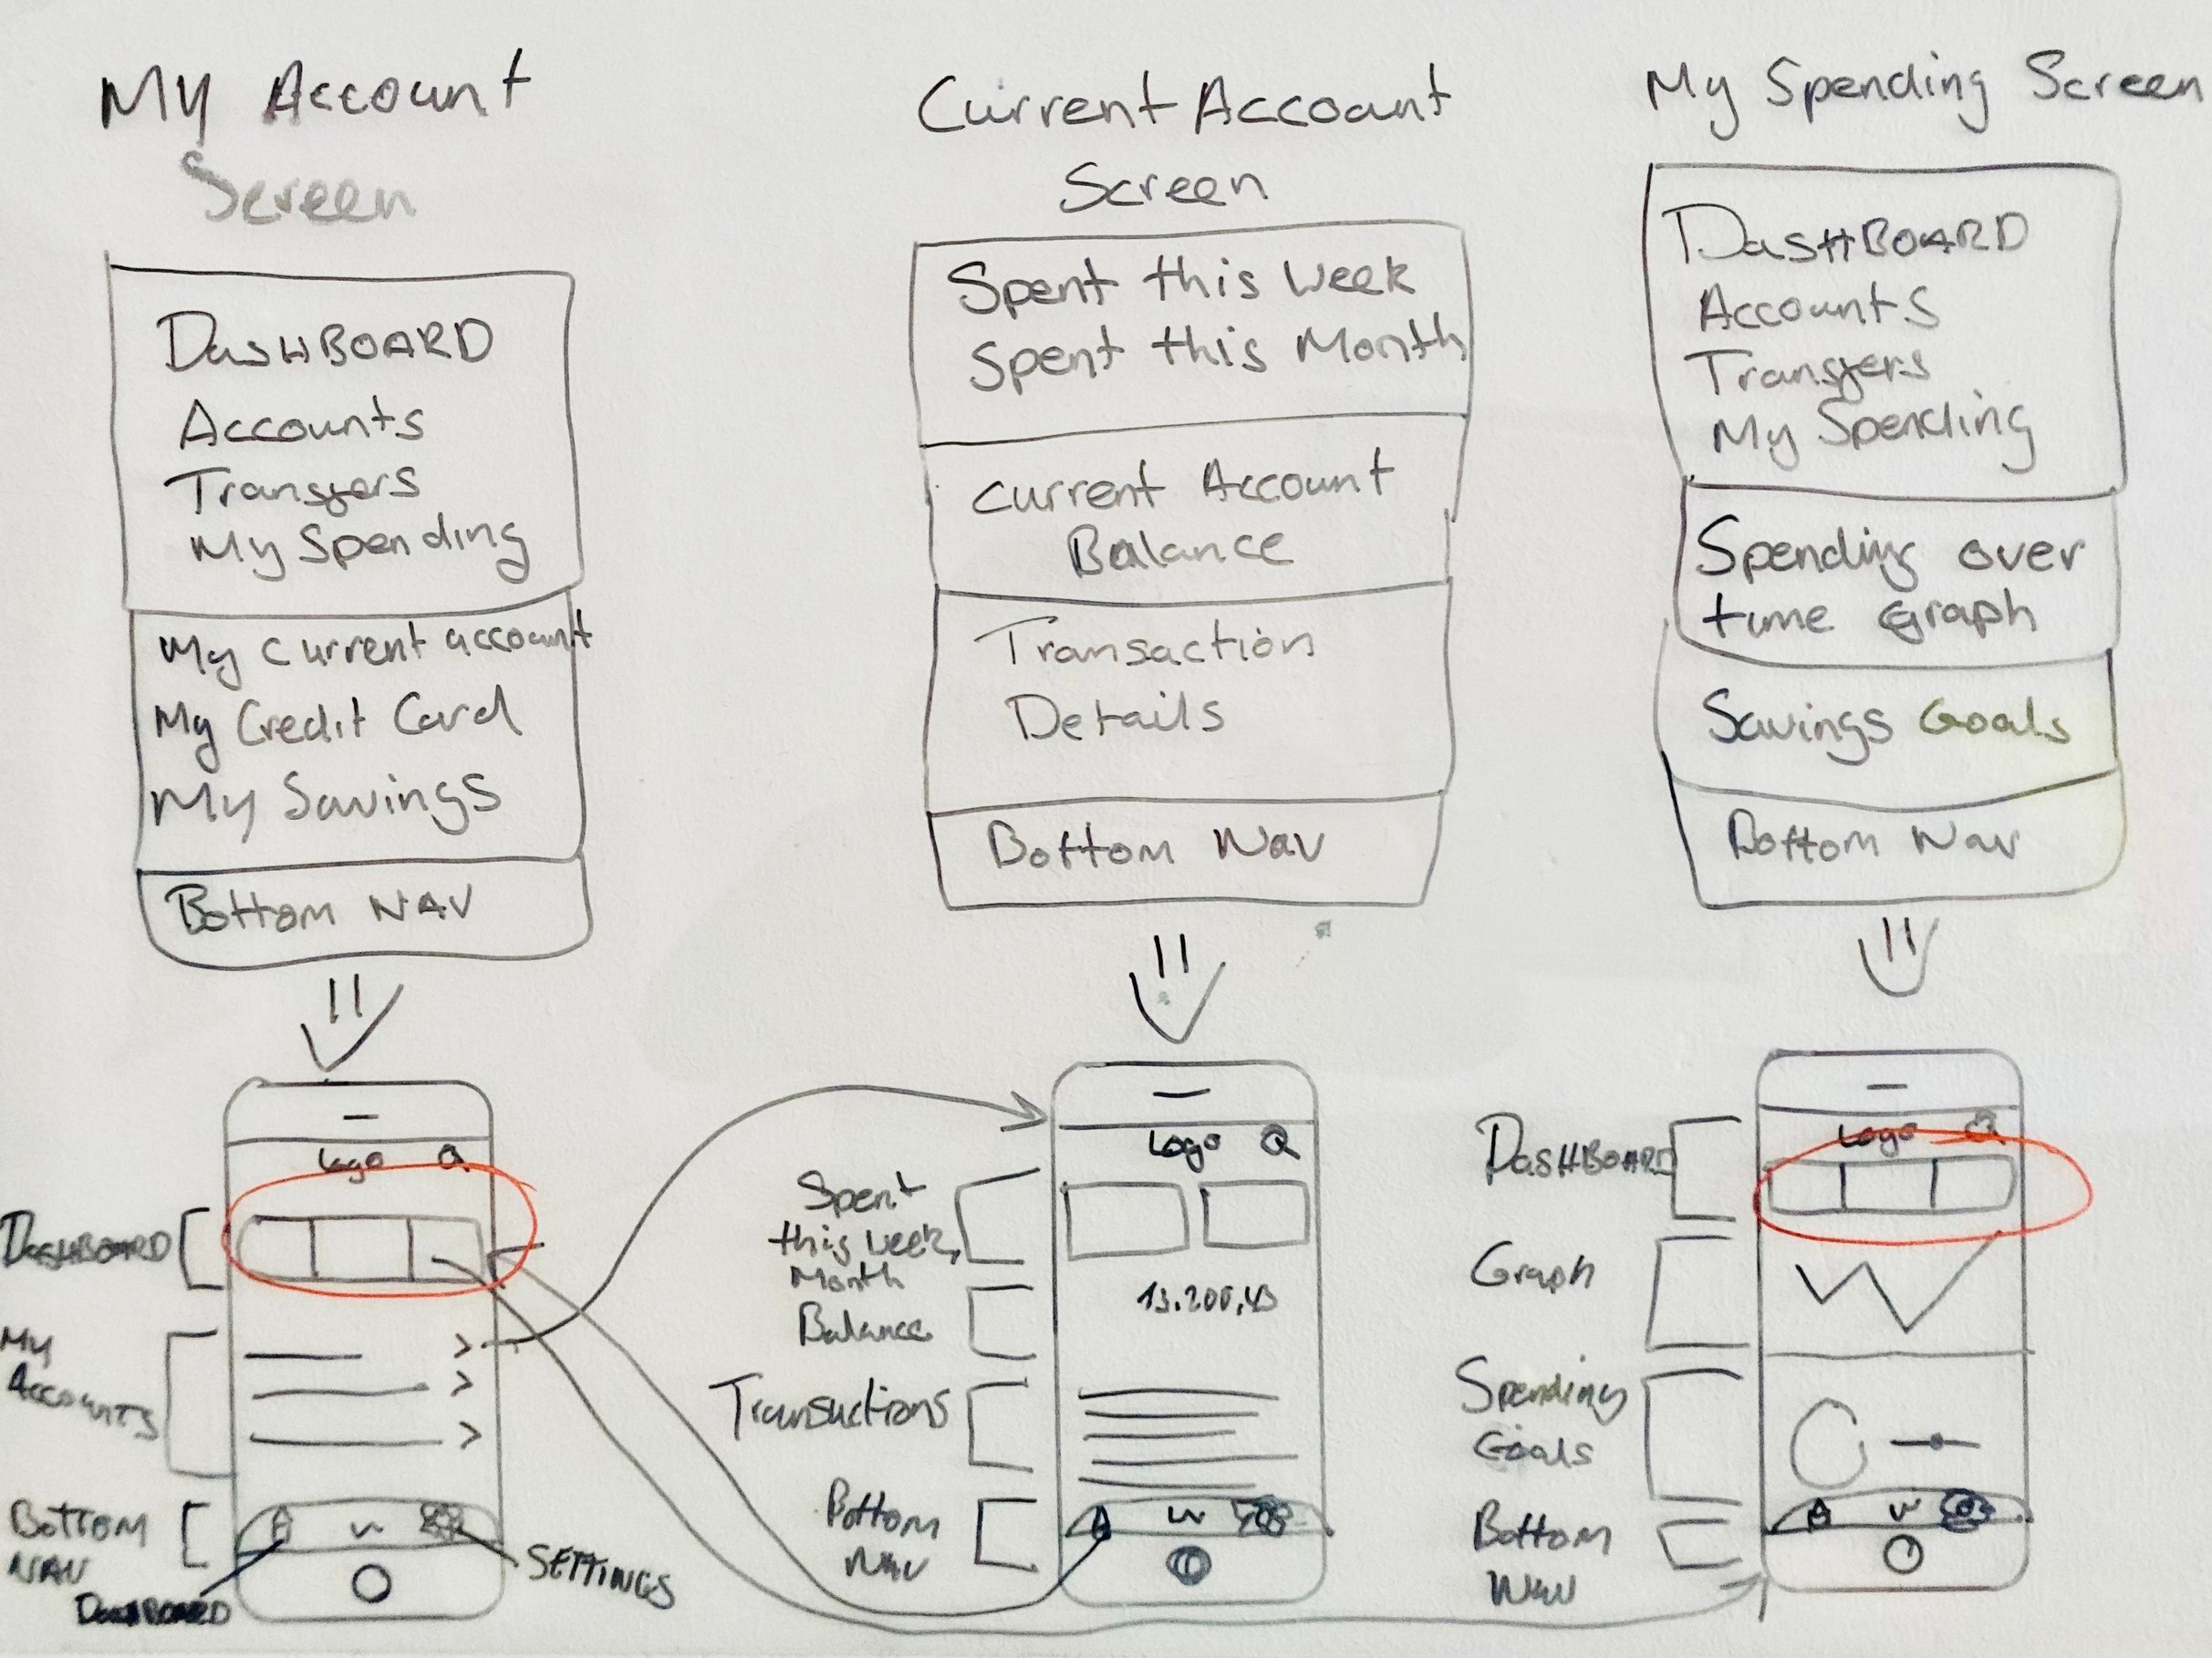 My Account
Screen
DASHBOARD
Accounts
Transfers
My Spending
My Current account
My Credit Card
My Savings
Bottom NAV
Current Account
Screen
Spent this Week
Spent this Month
Current Account
Balance
Transaction
Details
Bottom Nav
My Spending Screen
DASHBOARD
Accounts
Transfers
My Spending
Spending over
time Graph
Savings Goals
Bottom Nav
Logo
DASHBOARD
My
Accounts
Bottom
NAV
DASHBOARD
SETTINGS
Logo
Spent
this week,
Month
Balance
Transactions
Bottom
Nav
Logo
DASHBOARD
Graph
Spending
Goals
Bottom
Nav